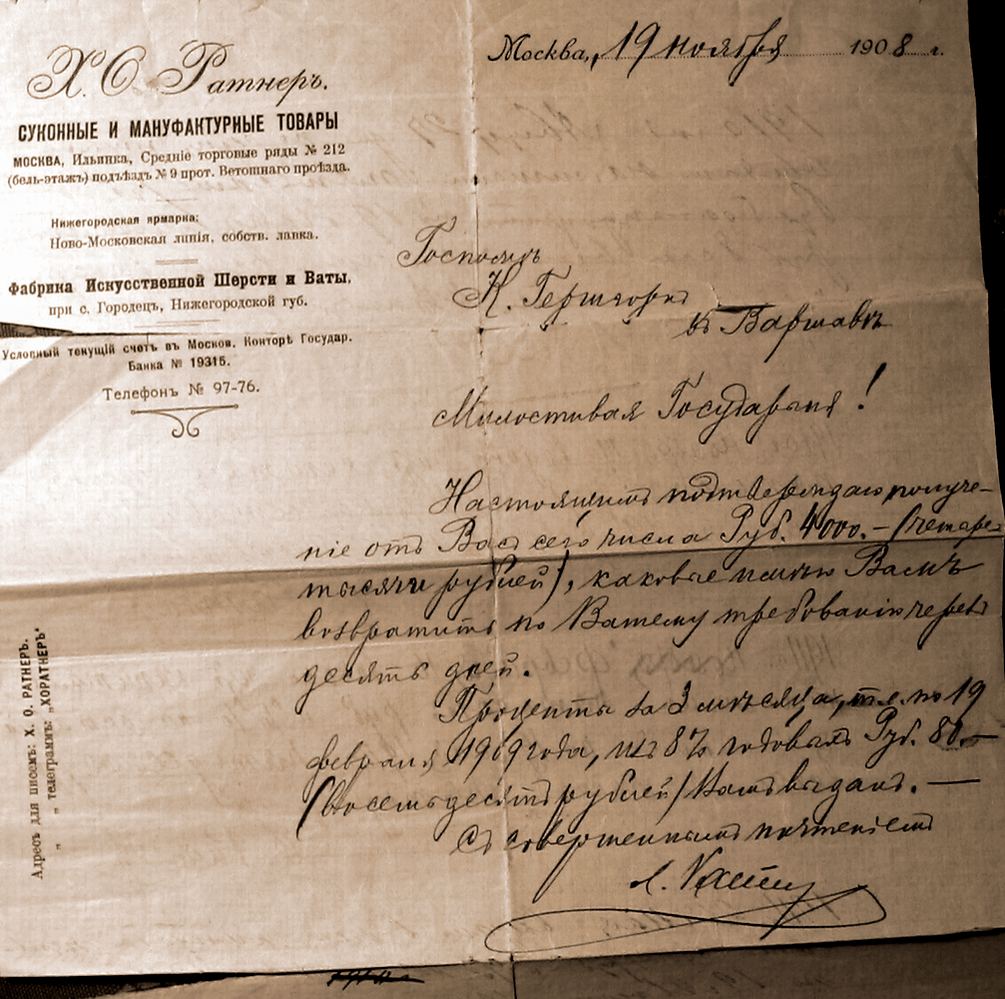 Х. О. Ратнеръ.
СУКОННЫЕ И МАНУФАКТУРНЫЕ ТОВАРЫ
МОСКВА, Ильинка, Средніе торговые ряды № 212
(бель-этажъ) подъѣздъ № 9 прот. Ветошнаго проѣзда.
Нижегородская ярмарка:
Ново-Московская линія, собств. лавка.
Фабрика Искусственной Шерсти и Ваты,
при с. Городецъ, Нижегородской губ.
Условный текущій счетъ въ Москов. Конторѣ Государ.
Банка № 19315.
Телефонъ № 97-76.
Адресъ для писемъ: Х. О. РАТНЕРЪ.
„ „ телеграммъ: „ХОРАТНЕРЪ“
Москва, 19 ноября 1908 г.
Госпожѣ
въ Варшавѣ
Милостивая Государыня!
Настоящимъ подтверждаю получе-
ніе отъ Васъ сего числа Руб. 4000.— (четыре
тысячи рублей), каковые имѣю Вамъ
возвратить по Вашему требованію черезъ
десять дней.
Проценты за 3 мѣсяца, т.е. по 19
февраля 1909 года, изъ 8% годовыхъ Руб. 80.—
(восемьдесятъ рублей) Вамъ выданы. —
Съ совершеннымъ почтеніемъ